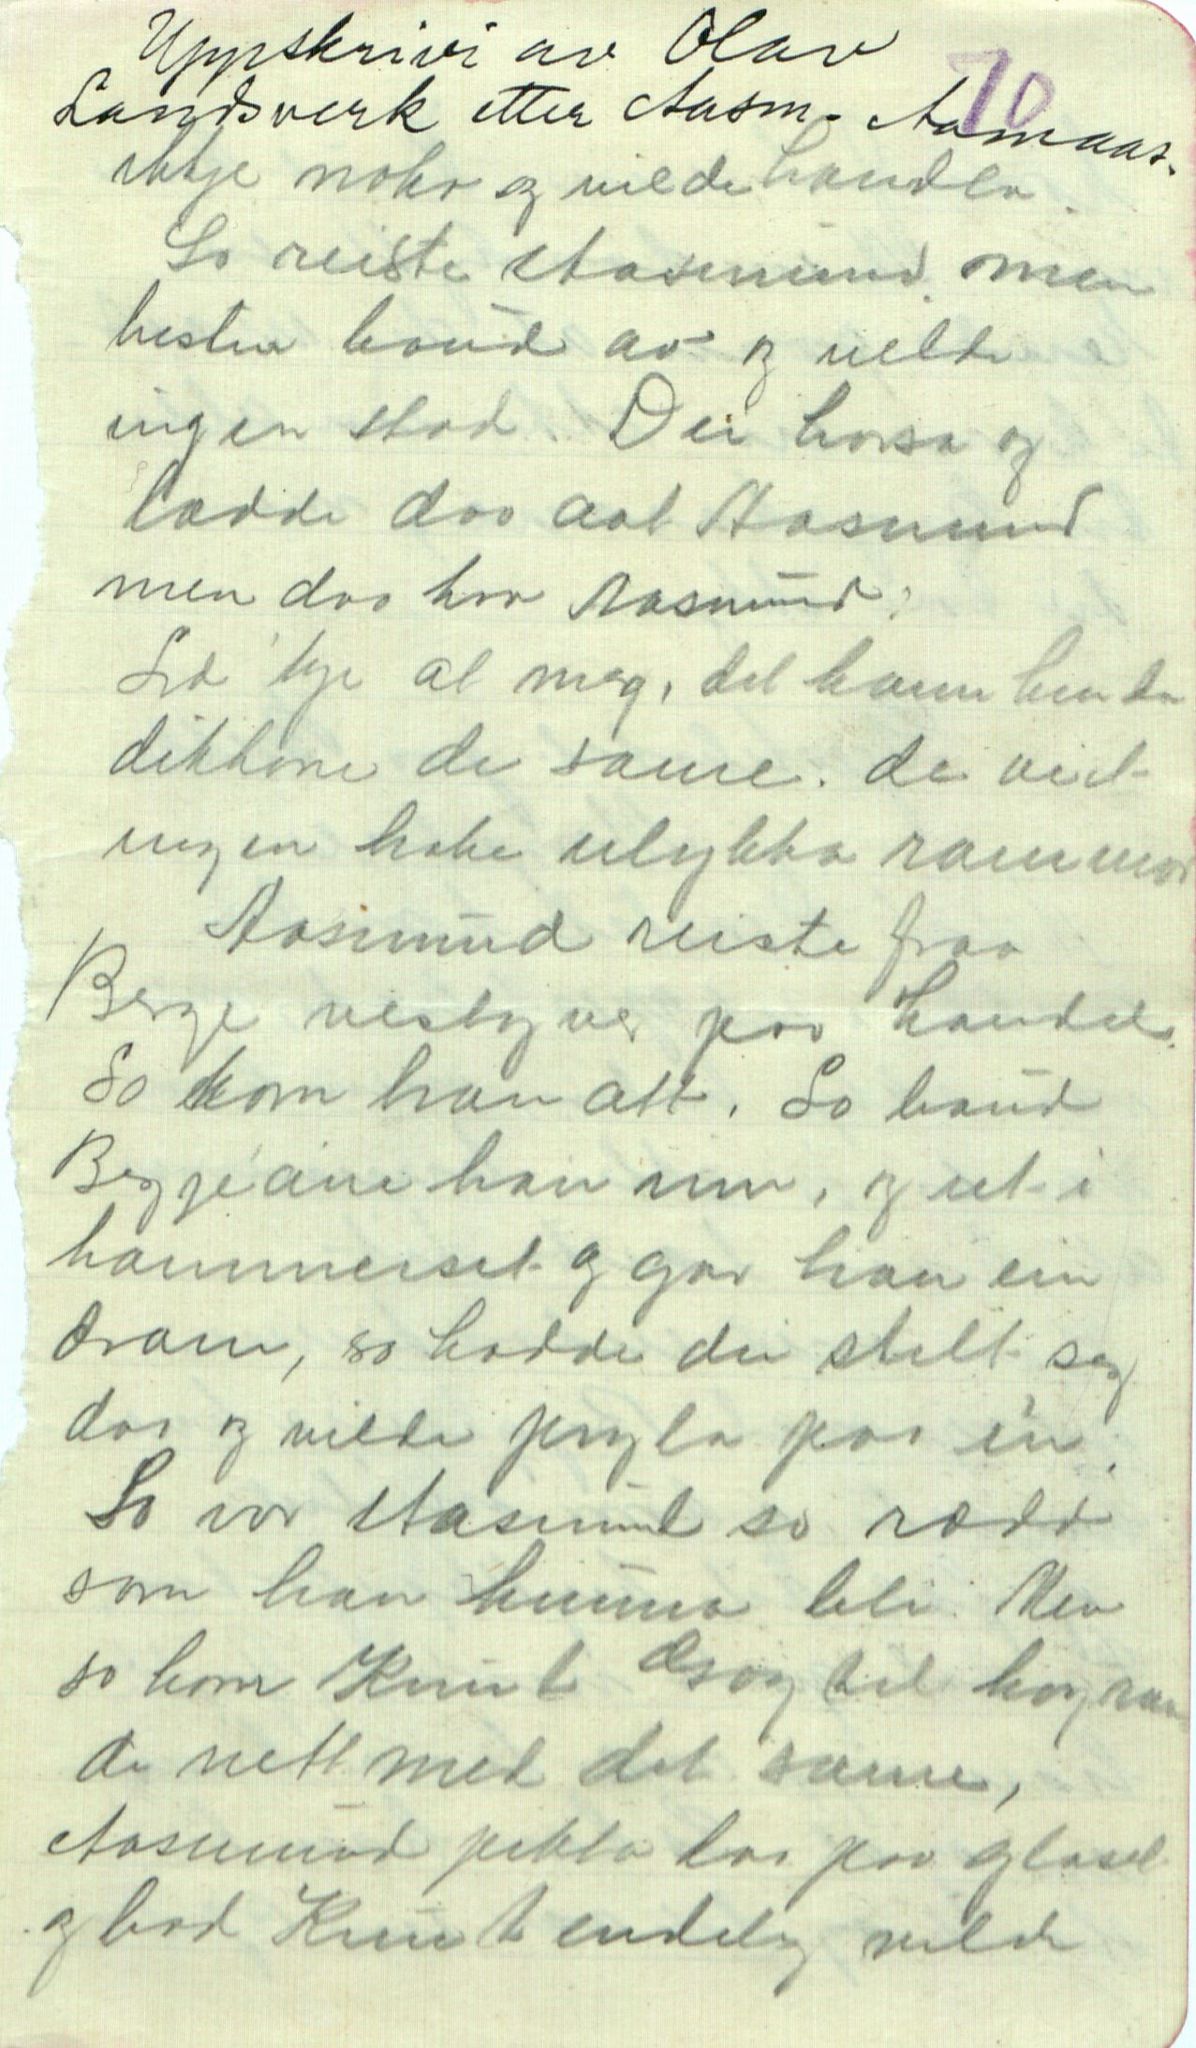 Uppskrivi av Olav
70
Landsverk etter Aasm. Aamaas.
ikkje noko og vilde handla.
So reiste Aasmund. men
hesten baud av og vilde
ingen stad. Dei horsa og
lædde daa aat Aasmund
men daa kva Aasmund:
Læ 'kje at meg, det kann henda
dikkone de same. de veit
ingen hoke ulykka rammar
Aasmund reiste fraa
Berge vestyver paa handel.
So kom han att. So baud
Bergjeane han inn, og ut i
kammerset og gav han ein
dram, so hadde dei stelt seg
dar og vilde pryla paa 'en.
So var Aasmund so rædd
som han kunna bli. Men
so kom Knut til
de nett med det same,
Aasmund pikka daa paa glaset
og bad Knut endeleg vilde